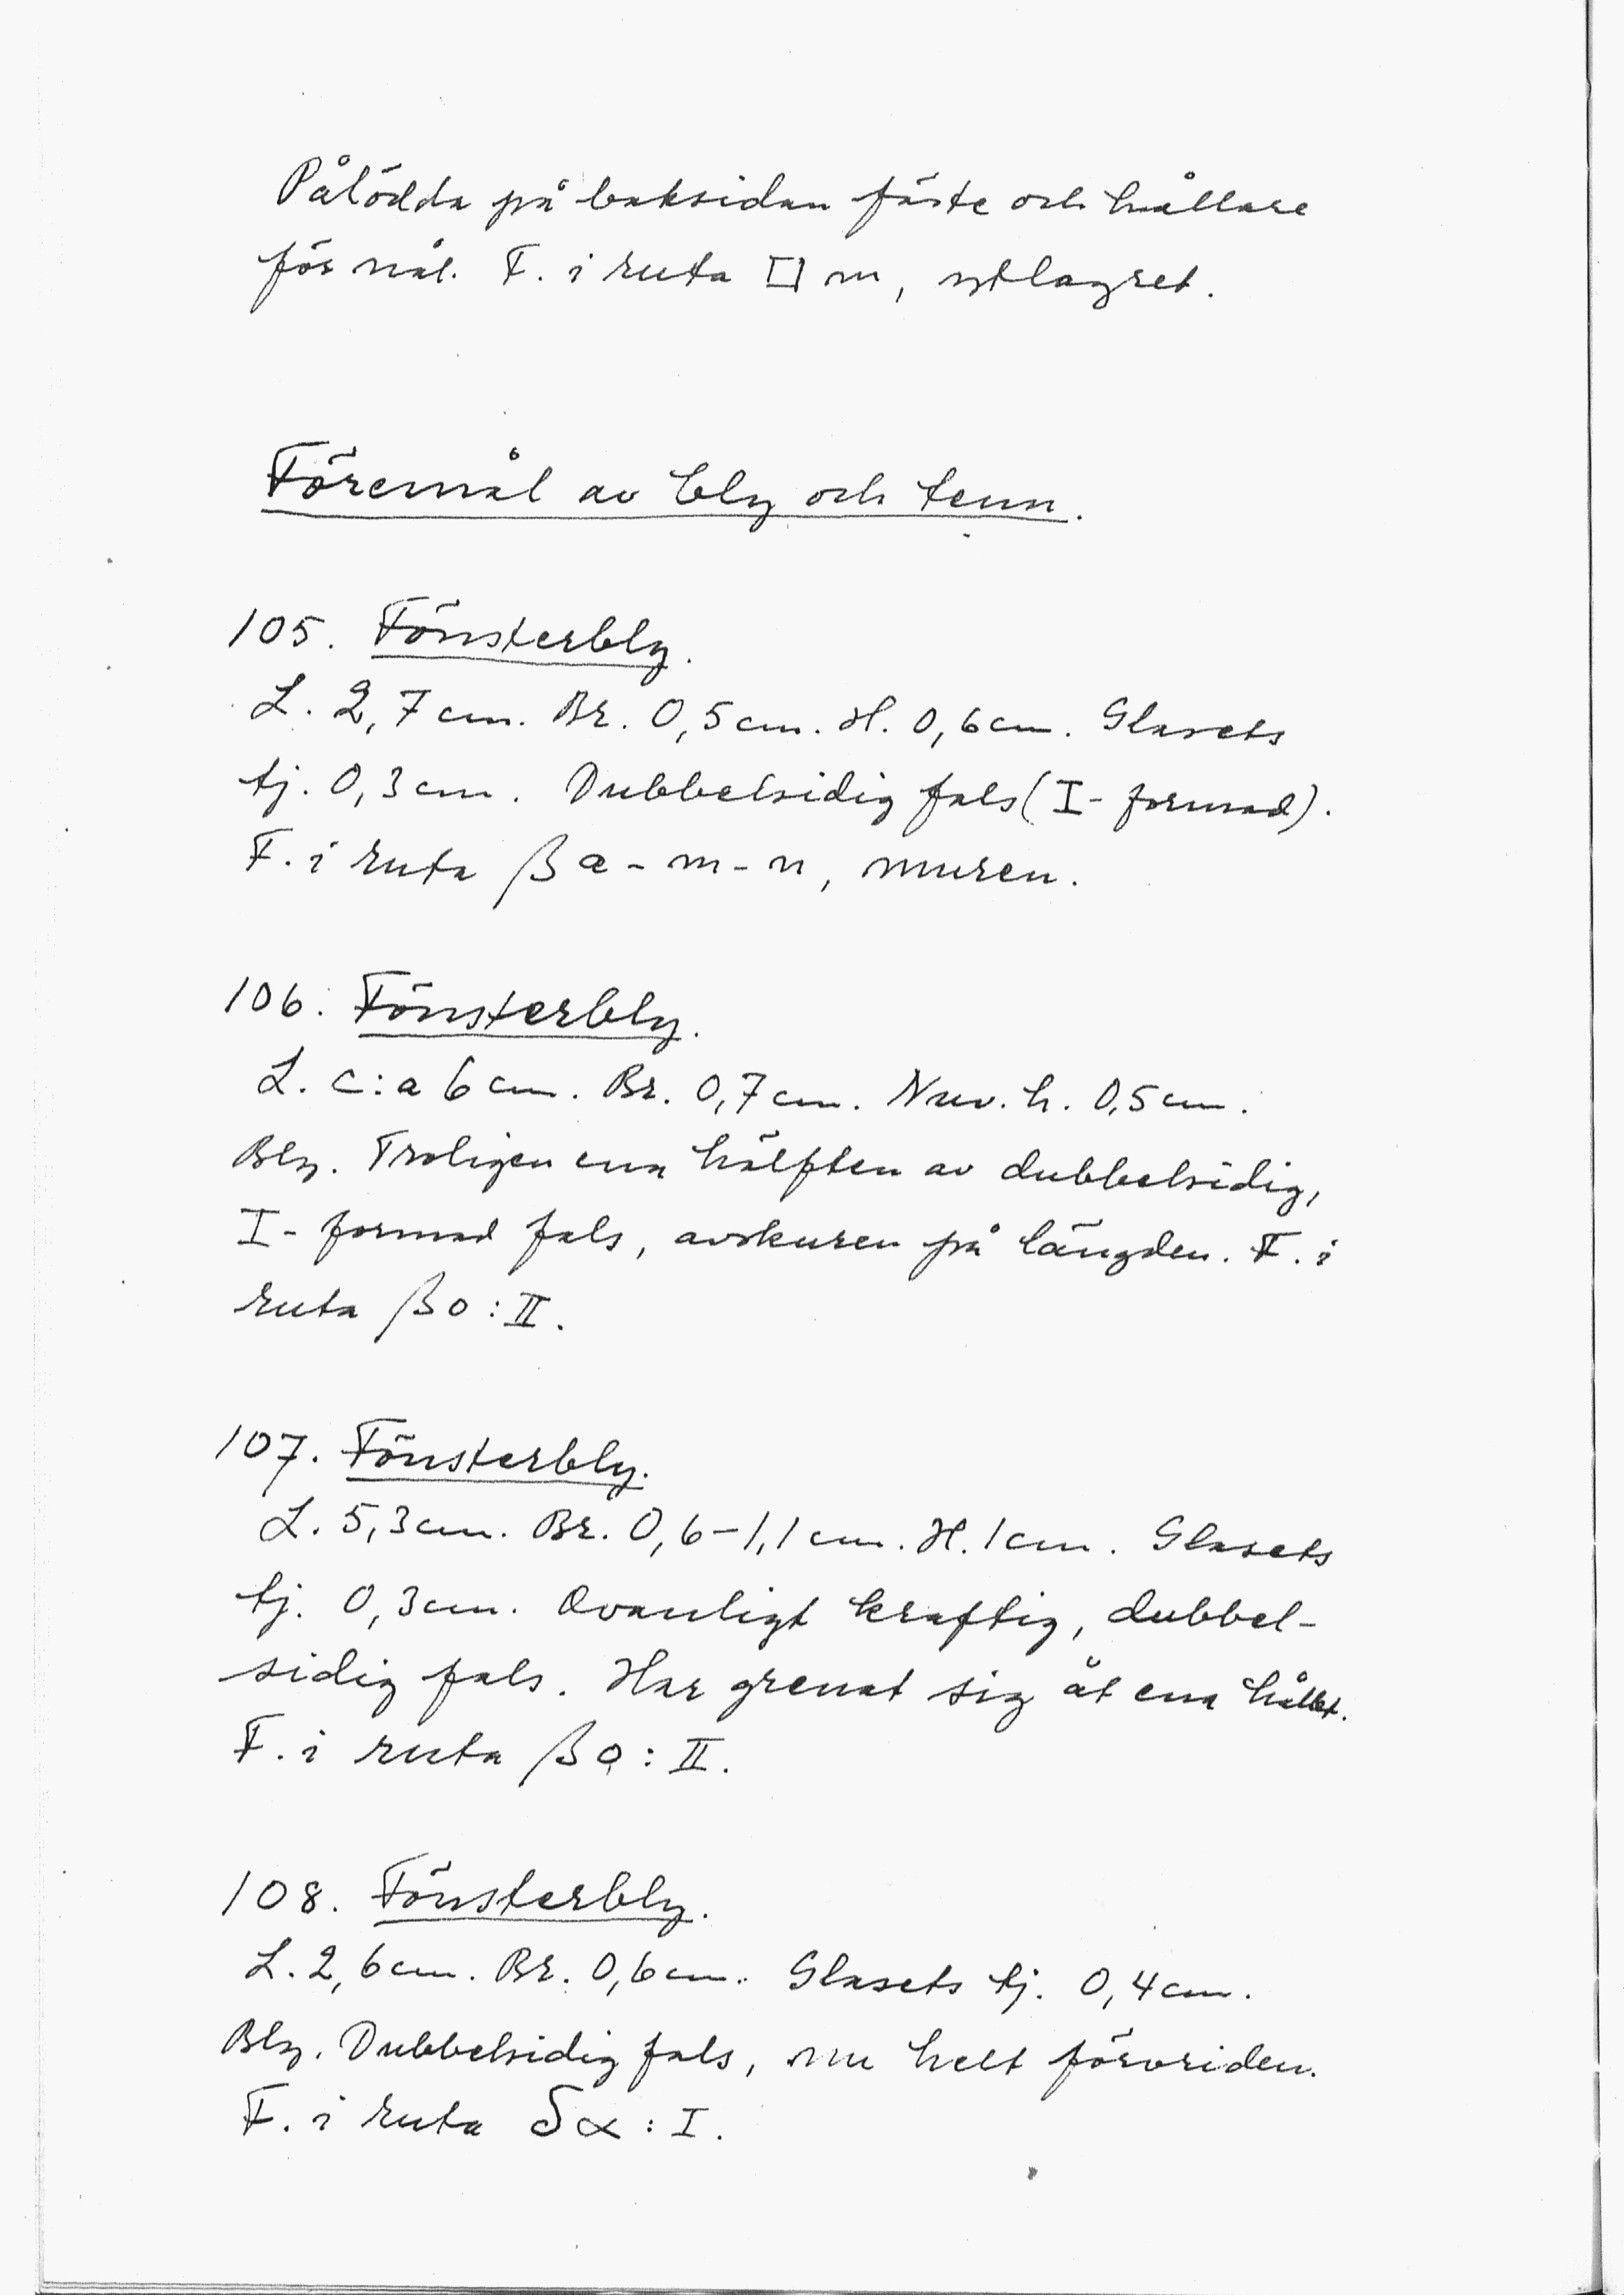 Pålödda på baksidan fäste och hållare
för nål. F. i ruta □ m, ytlagret.
Föremål av bly och tenn.
105. Fönsterbly.
L. 2,7 cm. Br. 0,5 cm. H. 0,6 cm. Glasets
tj. 0,3 cm. Dubbelsidig fals (I-formad).
F. i ruta β a - m - n, muren.
106. Fönsterbly.
L. c:a 6 cm. Br. 0,7 cm. Nuv. h. 0,5 cm.
Bly. Troligen ena hälften av dubbelsidig,
I-formad fals, avskuren på längden. F. i
ruta β o : II.
107. Fönsterbly.
L. 5,3 cm. Br. 0,6-1,1 cm. H. 1 cm. Glasets
tj. 0,3 cm. Ovanligt kraftig, dubbel-
sidig fals. Har grenat sig åt ena hållet.
F. i ruta β o : II.
108. Fönsterbly.
L. 2,6 cm. Br. 0,6 cm. Glasets tj. 0,4 cm.
Bly. Dubbelsidig fals, nu helt förvriden.
F. i ruta δ α : I.